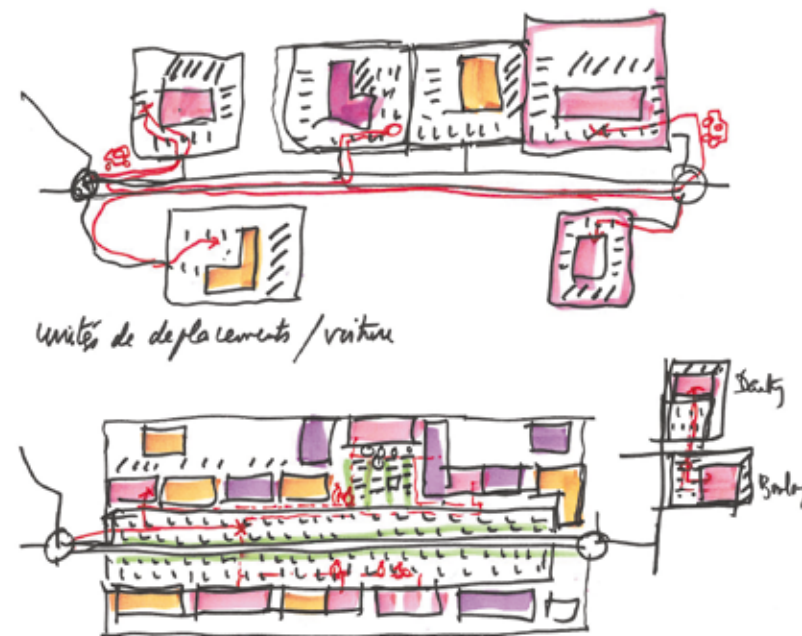 unités de deplacements / voiture
Darty